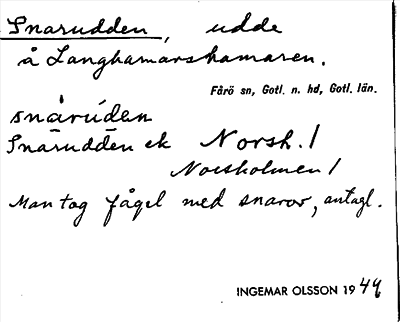 Snarudden, udde
å Langhamarshamaren.
Fårö sn, Gotl. n. hd, Gotl. län.
snårúdan
Snärudden ek Norsh. /
Norsholmen /
Man tog fågel med snaror, antagl.
INGEMAR OLSSON 1944